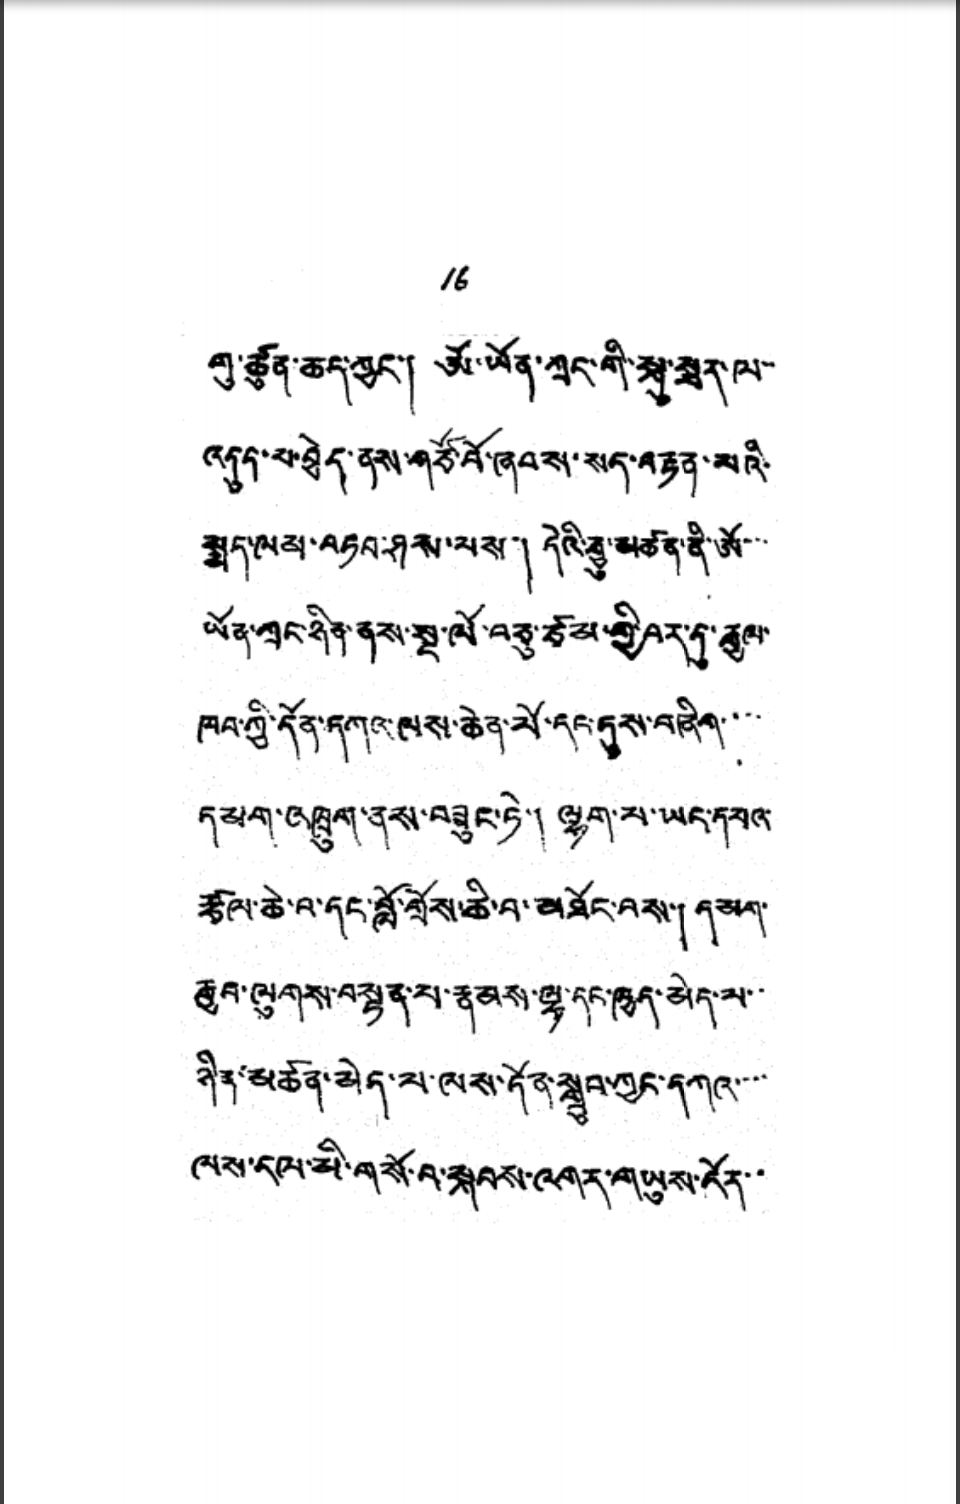 16
ཀུ་ཚུན་ཆད་ཀྱང་། ཨོ་ཡོན་ཀྲང་གི་སྐུ་སྦྲན་ལ་
འདུད་པ་བྱེད་ནས་གཙོ་བོ་ཞབས་པད་བརྟན་པའི་
སྨད་ལམ་བཏབ་ཤས་པས་། དེའི་རྒྱུ་མཚན་ནི་ཨོ་
ཡོན་ཀྲང་ཤིན་ནས་སྔ་ལོ་བཅུ་ཙམ་གྱི་བར་དུ་རྒྱལ་
ཁབ་ཀྱི་དོན་དཀའ་ལས་ཆེན་པོ་དང་དུས་བཞིག་
དམག་འཁྲུག་ནས་བཟུང་ཏེ་། ལྷག་པ་ཡང་དཔའ་
རྩལ་ཆེ་བ་དང་བློ་གྲོས་ཆེ་བ་མཐོང་བས་། དམག་
རྒྱབ་ལུགས་བསྟན་པ་རྣམས་ལྟ་དང་ཁྱད་མེད་པ་
ཤིན་མཚན་མེད་པ་ལས་དོན་སྒྲུབ་ཀྱང་དཀའ་
ལས་དལ་མི་གསོ་བ་སྐབས་འགར་གཡུས་ངོར་